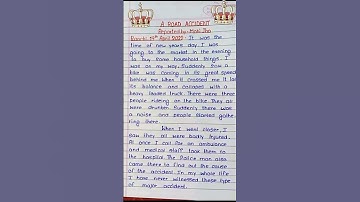 A ROAD ACCIDENT
Reported by :- Mohi Jha
Ranchi, 27th April 2022 : It was the
time of new years day. I was
going to the market in the evening
to buy some household things. I
was on my way. Suddenly from a
bike was coming in its great speed
behind me when it crossed me it lost
its balance and collided with a
heavy loaded truck. There were three
people riding on the bike. They all
were drunken. Suddenly there was
a noise and people started gathe
ring there.
When I went closer, I
saw they all were badly injured.
At once I call for an ambulance
and medical staff took them to
the hospital. The Police man also
came there to find out the cause
of the accident. In my whole life
I have never witnessed these type
of major accident.